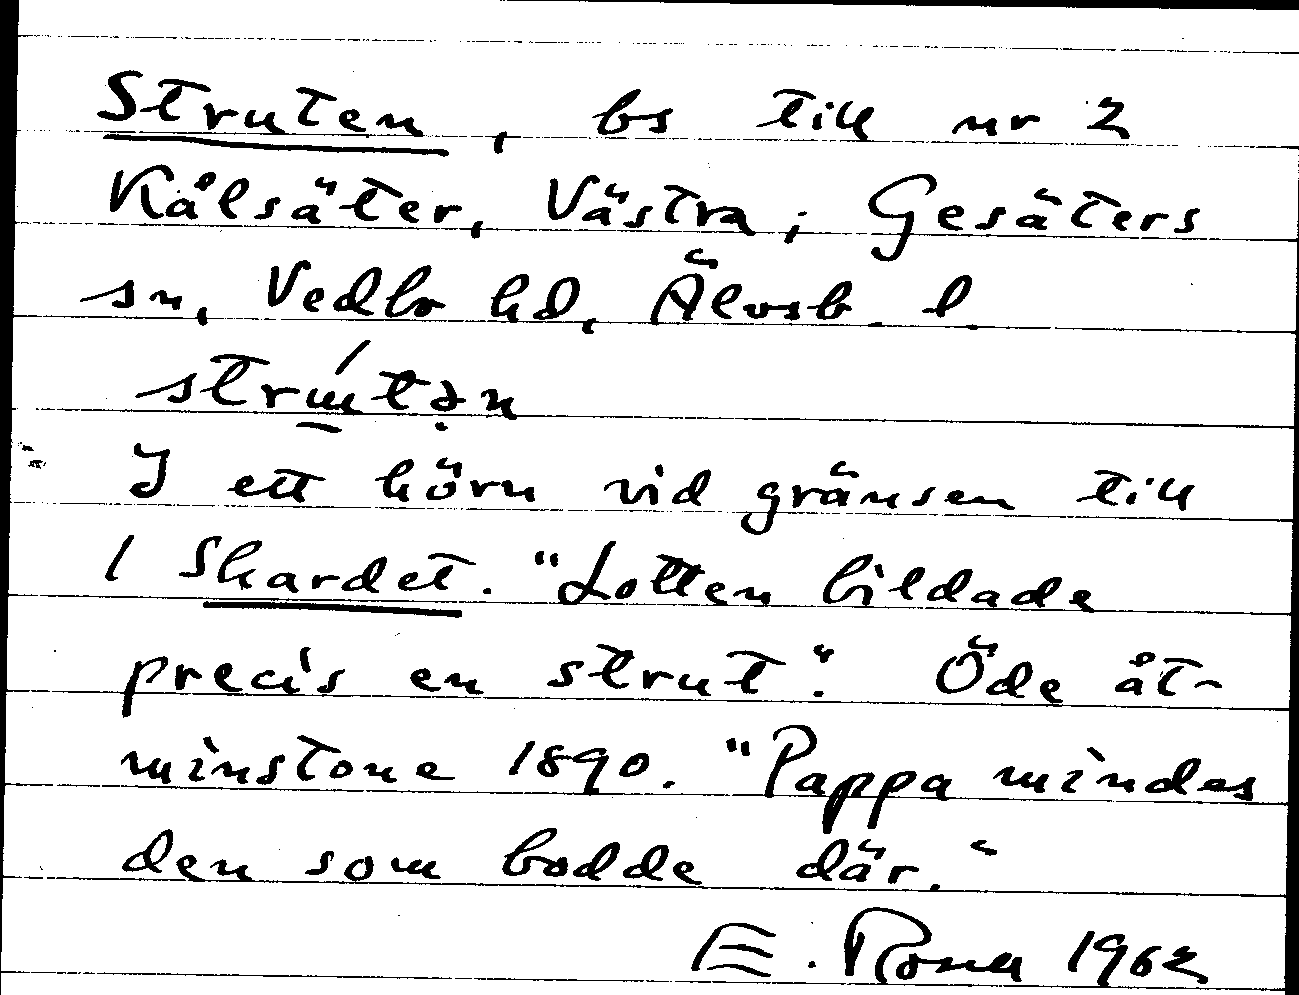 Struten, bs till nr 2
Kålsäter, Västra; Gesäters
sn, Vedbo hd, Älvsb. l.
I ett hörn vid gränsen till
1 Skardet. "Lotten bildade
precis en strut". Öde åt-
minstone 1890. "Pappa mindes
den som bodde där."
E. 1962